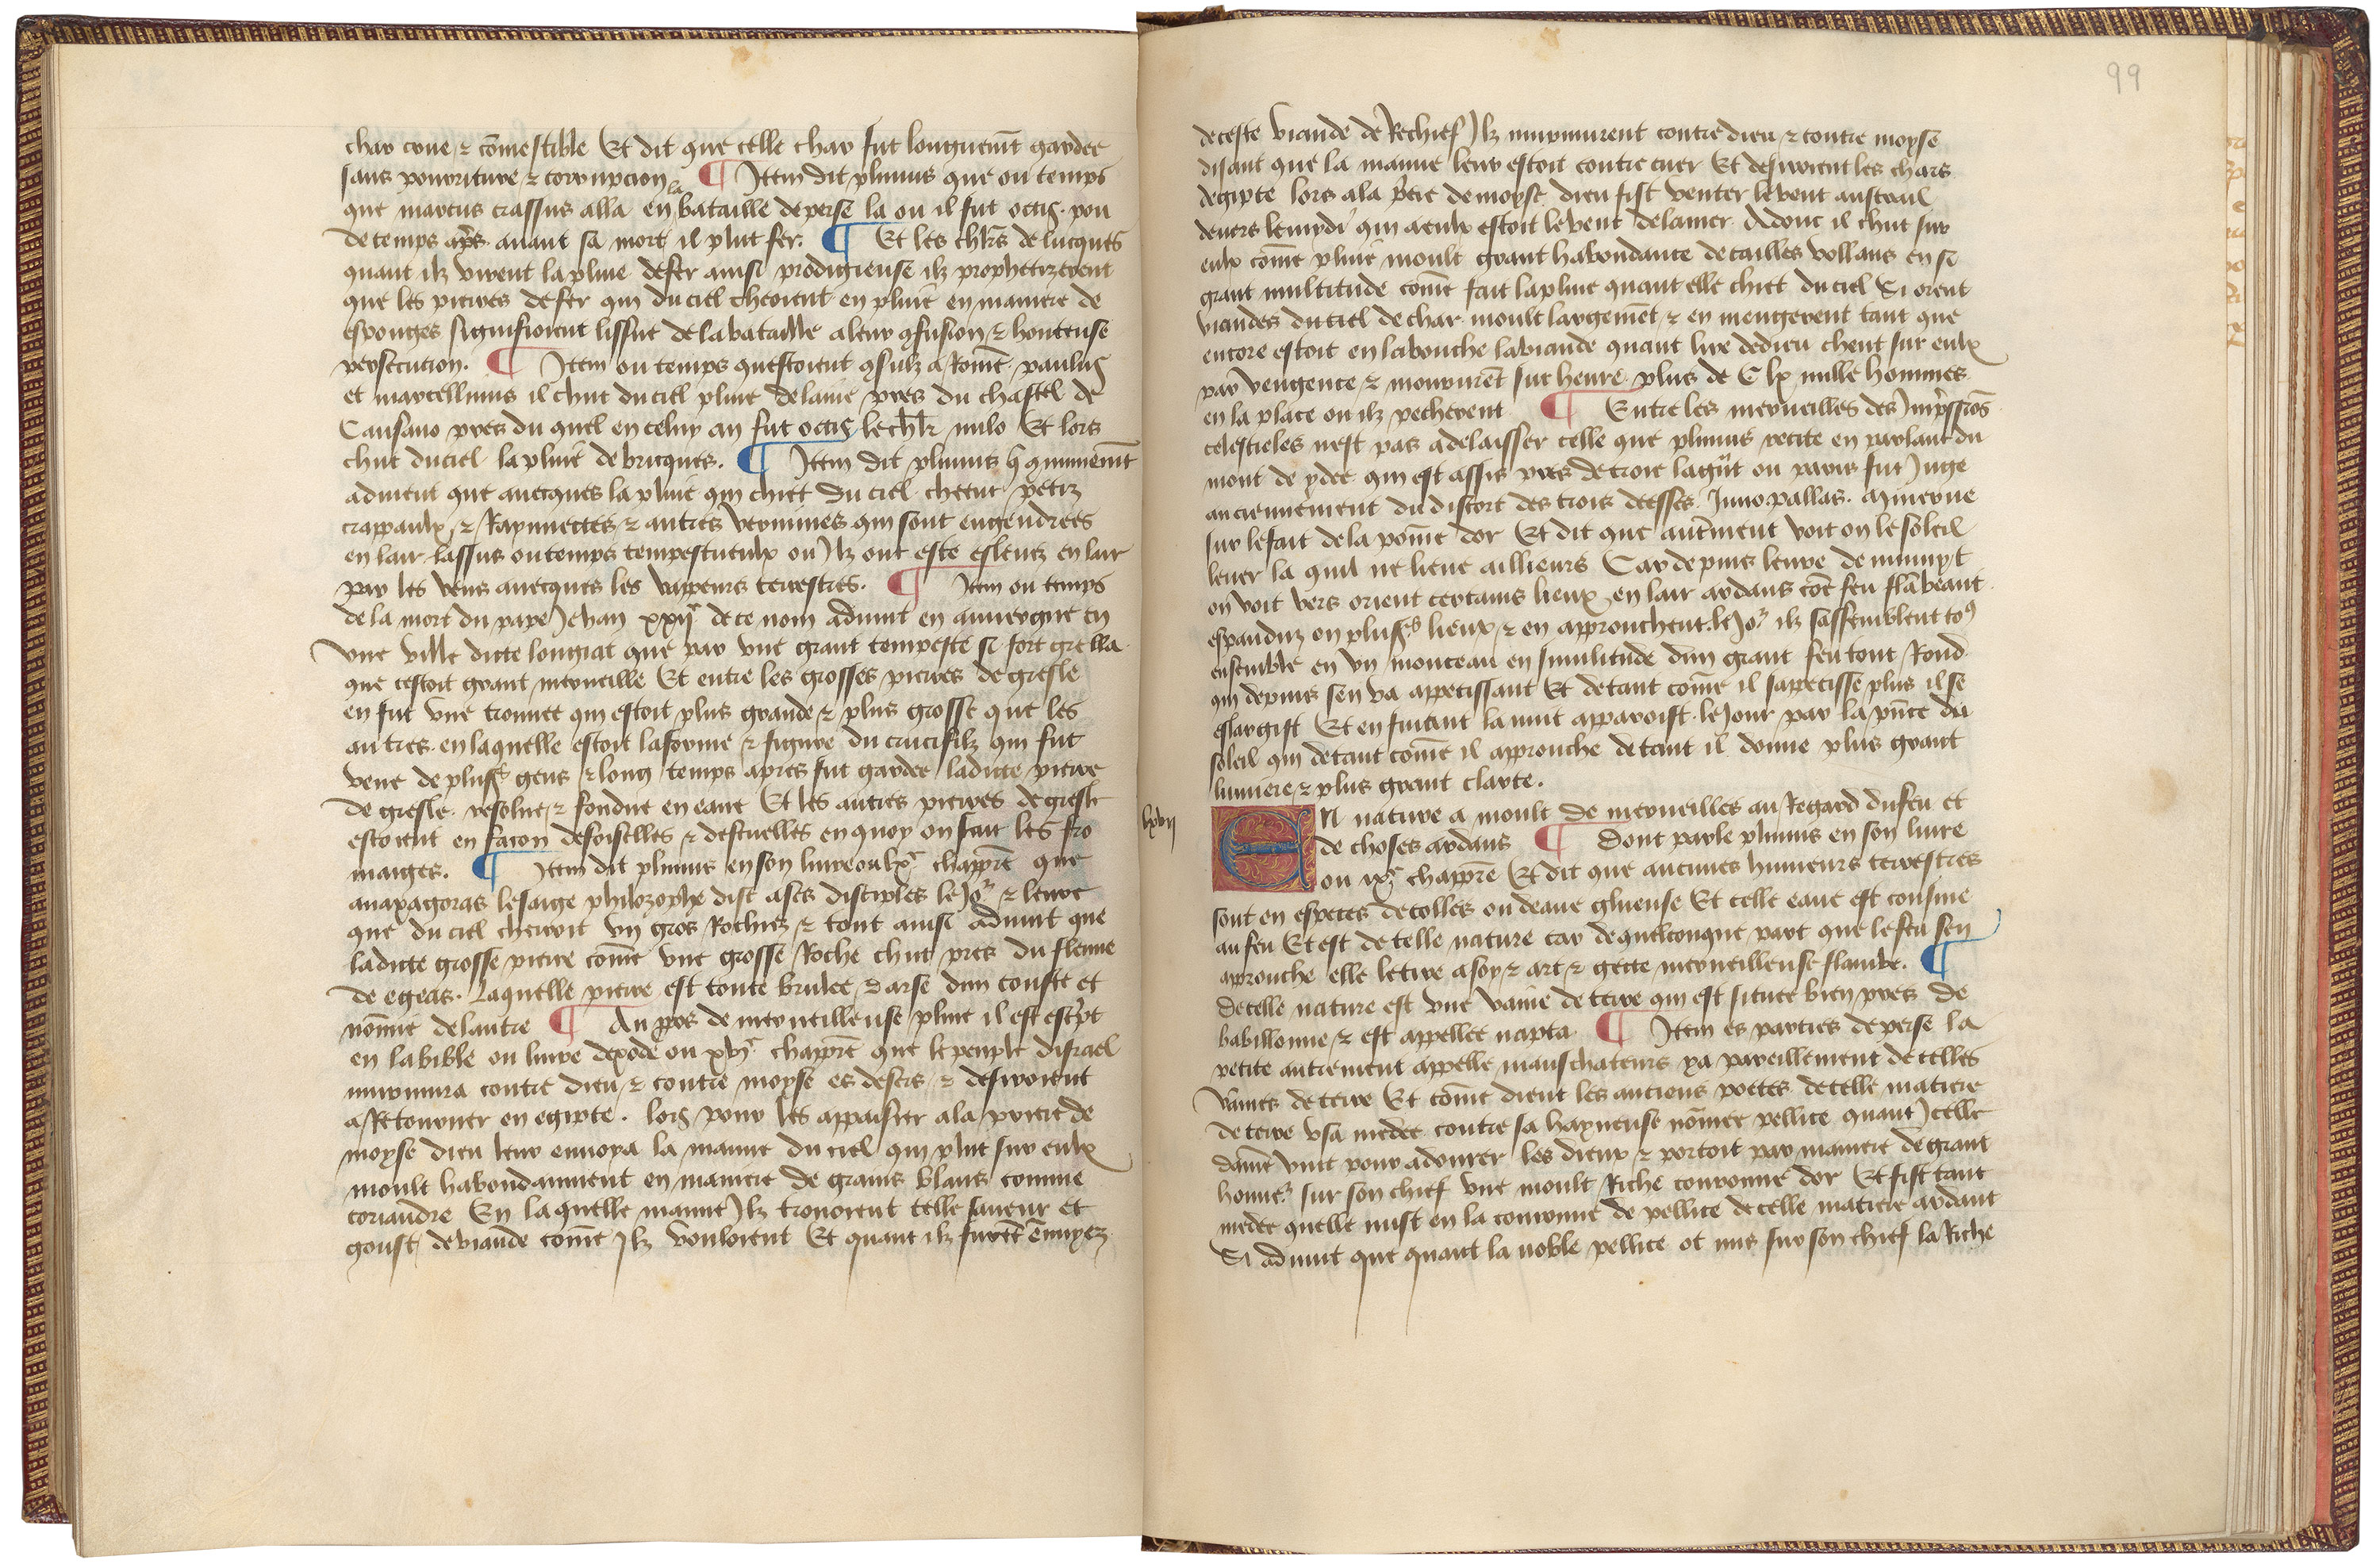 char crue ⁊ cõmestible Et dit que celle char fut longuemẽt gardee
sans pourriture ⁊ corrupcion ¶ Item dit plinius que ou temps
que marcus crassus alla en la bataille de perse la ou il fut occis pou
de temps apr̃s auant sa mort il plut fer. ¶ Et les chl̃rs de lucques
quant ilz virent la pluie de fer ainsi prodigieuse ilz prophetizerent
que les pierres de fer qui du ciel cheoient en pluie en maniere de
esponges signifioient lissue de la bataille a leur ꝯfusion ⁊ honteuse
persecucion. ¶ Item ou temps questoient ꝯsulz a Rome paulus
et marcellinus il chut du ciel pluie de laine pres du chastel de
Cansano pres du quel en celuy an fut occis le chl̃r milo Et lors
chut du ciel la pluie de bricques. ¶ Item dit plinius q̃ ꝯmunemẽt
aduient que auecques la pluie qui chiet du ciel cheent petiz
crappaulx ⁊ Raynnectes ⁊ autres vermines qui sont engendrees
en lair lassus ou temps tempestueulx ou Ilz ont este esleuez en lair
par les vens auecques les vappeurs terrestres. ¶ Item ou temps
de la mort du pape Jehan xxijᵉ de ce nom aduint en auuergne en
vne ville dicte longiat que par vne grant tempeste si fort grella
que cestoit grant merueille Et entre les grosses pierres de gresle
en fut vne trouuee qui estoit plus grande ⁊ plus grosse que les
autres en laquelle estoit la forme ⁊ figure du crucifilz qui fut
veue de plus̃rs gens ⁊ long temps apres fut gardee ladicte pierre
de gresle resolue ⁊ fondue en eaue Et les autres pierres de gresle
estoient en facon de foiselles ⁊ descuelles en quoy on fait les fro
maiges. ¶ Item dit plinius en son liure ou lxᵉ chapp̃re que
anaxagoras le saige philozophe dist a ses disciples le Joʳ ⁊ leure
que du ciel cherroit vn gros Rochiez ⁊ tout ainsi aduint que
ladicte grosse pierre cõme vne grosse Roche chut pres du fleuue
de egeas. Laquelle pierre est toute brulee ⁊ arse dun couste et
nõmie de lautre ¶ Au ppos de merueilleuse pluie il est escp̃t
en la bible ou liure dexode ou xvjᵉ chapp̃re que le peuple disrael
murmura contre dieu ⁊ contre moyse es desers ⁊ desiroient
a Retourner en egipte. lors pour les appaisier a la priere de
moyse dieu leur enuoya la manne du ciel qui plut sur eulx
moult habondamment en maniere de grains blans comme
coriandre En laquelle manne Ilz trouoient telle saueur et
goust de viande cõme Ilz vouloient Et quant ilz furẽt ẽnuyez
99
de ceste viande de Rechief Ilz murmurent contre dieu ⁊ contre moyse
disant que la manne leur estoit contre cuer Et desiroient les chars
degipte lors a la p̃iere de moyse dieu fist venter le vent austral
deuers le mydi qui a eulx estoit le vent de la mer Adonc il chut sur
eulx cõme pluie moult grant habondance de cailles vollans en si
grant multitude cõme fait la pluie quant elle chiet du ciel Si orent
viandes du ciel de char moult largemẽt ⁊ en mengerent tant que
encore estoit en la bouche la viande quant lire de dieu cheut sur eulx
par vengence ⁊ mourirẽt sur heure plus de C lx mille hommes
en la place ou ilz pecherent ¶ Entre les merueilles des Imp̃ssiõs
celestieles nest pas a delaisser celle que plinius recite en parlant du
mont de ydee qui est assis pres de troie la grãt ou paris fut Juge
anciennement du discort des trois deesses Juno pallas. minerue
sur le fait de la põme dor Et dit que autrement voit on le soleil
leuer la quil ne lieue ailleurs Car depuis leure de minuyt
on voit vers orient certains lieux en lair ardans cõe feu flãbeant
espanduz en plus̃rs lieux ⁊ en approuchent le Joʳ ilz sassemblent toꝰ
ensemble en vn monceau en similitude dun grant feu tout Rond
qui depuis sen va appetissant Et de tant cõme il sapetisse plus il se
eslargist Et en fuiant la nuit apparoist le Jour par la pñce du
soleil qui de tant cõme il approuche de tant il donne plus grant
lumiere ⁊ plus grant clarte.
lxvij
EN nature a moult de merueilles au Regard du feu et
de choses ardans ¶ Dont parle plinius en son liure
ou ixᵉ chapp̃re Et dit que aucunes humeurs terrestres
sont en especes de colles ou deaue glueuse Et celle eaue est cousine
au feu Et est de telle nature car de quelconque part que le feu sen
aprouche elle le tire a soy ⁊ art ⁊ gecte merueilleuse flambe. ¶
De telle nature est vne vaine de terre qui est situee bien pres de
babillonne ⁊ est appellee napta ¶ Item es parties de perse la
petite autrement appelle mauschateurs ya pareillement de telles
vaines de terre Et cõme dient les anciens poetes de celle matiere
de terre vsa medee contre sa hayneuse nõmee pellice quant Icelle
dame vint pour adourer les dieux ⁊ portoit par maniere de grant
honneʳ sur son chief vne moult Riche couronne dor Et fist tant
medee quelle mist en la couronne de pellice de celle matiere ardant
Si aduint que quant la noble pellice ot mis sur son chief la Riche